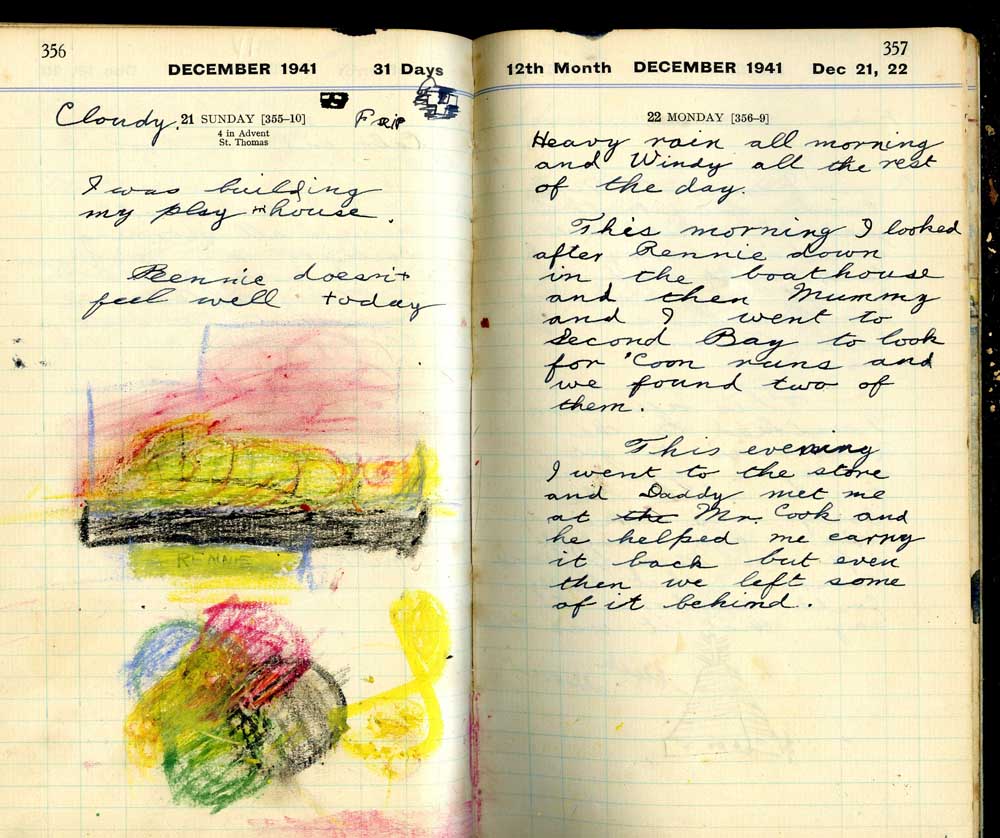 356
DECEMBER 1941 31 Days
Cloudy. 21 SUNDAY [355–10] Fair
4 in Advent
St. Thomas
I was building
my play house.
Rennie doesn't
feel well today
RENNIE
357
12th Month DECEMBER 1941 Dec 21, 22
22 MONDAY [356–9]
Heavy rain all morning
and Windy all the rest
of the day.
This morning I looked
after Rennie down
in the boathouse
and then Mummy
and I went to
Second Bay to look
for 'Coon runs and
we found two of
them.
This evening
I went to the store
and Daddy met me
at the Mr. Cook and
he helped me carry
it back but even
then we left some
of it behind.